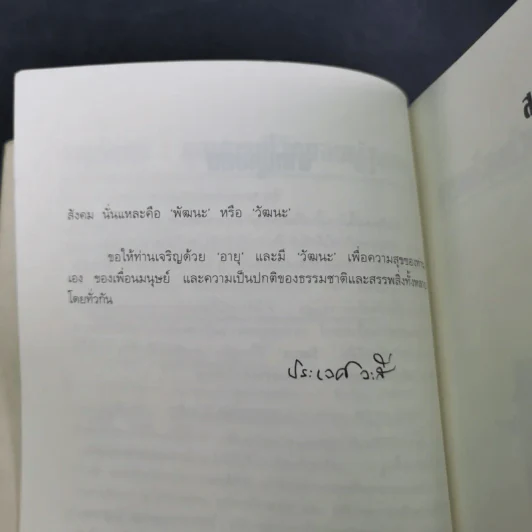 สังคม นั่นแหละคือ ‘พัฒนะ’ หรือ ‘วัฒนะ’
ขอให้ท่านเจริญด้วย ‘อายุ’ และมี ‘วัฒนะ’ เพื่อความสุขของท่าน
เอง ของเพื่อนมนุษย์ และความเป็นปกติของธรรมชาติและสรรพสิ่งทั้งหลาย
โดยทั่วกัน
ประเวศ วะสี